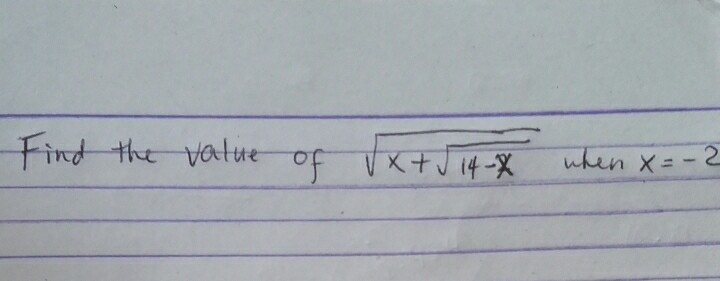 Find the value of √(x+√(14-x)) when x=-2